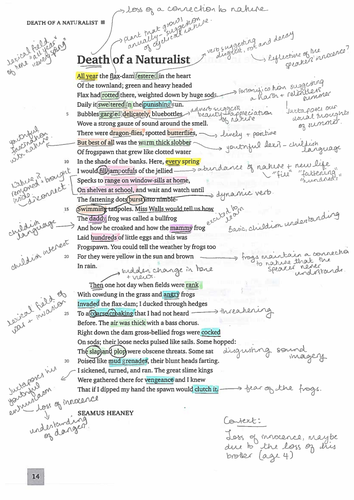 DEATH OF A NATURALIST
loss of a connection to nature
plant that grows annually, suggestion of cyclical nature.
Death of a Naturalist
lexical field of time "all year"
very suggesting
reflective of the speakers innocence?
All year the flax-dam festered in the heart
Of the townland; green and heavy headed
Flax had rotted there, weighted down by huge sods.
Daily it sweltered in the punishing sun.
5 Bubbles gargled delicately, bluebottles
Wove a strong gauze of sound around the smell.
There were dragon-flies, spotted butterflies,
But best of all was the warm thick slobber
Of frogspawn that grew like clotted water
10 In the shade of the banks. Here, every spring
I would fill jampotfuls of the jellied
Specks to range on window-sills at home,
On shelves at school, and wait and watch until
The fattening dots burst into nimble-
15 Swimming tadpoles. Miss Walls would tell us how
The daddy frog was called a bullfrog
And how he croaked and how the mammy frog
Laid hundreds of little eggs and this was
Frogspawn. You could tell the weather by frogs too
20 For they were yellow in the sun and brown
In rain.
personification suggesting
juxtaposes our usual thoughts of summer
youthful fascination with nature
lovely + positive
youthful lexis - childish language
abundance of nature + new life
dynamic verb
childish language
excited to learn
Basic, childish understanding
childish interest
frogs maintain a connection to nature that the speaker never understands.
sudden change in tone
Then one hot day when fields were rank
With cowdung in the grass and angry frogs
Invaded the flax-dam; I ducked through hedges
25 To a coarse croaking that I had not heard
Before. The air was thick with a bass chorus.
Right down the dam gross-bellied frogs were cocked
On sods; their loose necks pulsed like sails. Some hopped:
The slap and plop were obscene threats. Some sat
30 Poised like mud grenades, their blunt heads farting.
I sickened, turned, and ran. The great slime kings
Were gathered there for vengeance and I knew
That if I dipped my hand the spawn would clutch it.
lexical field of war + invasion
threatening
disgusting sound imagery
juxtaposes his youthful enthusiasm
loss of innocence
understanding of danger.
fear of the frogs.
SEAMUS HEANEY
Context:
Loss of innocence, maybe due to the loss of his brother (age 4)
14